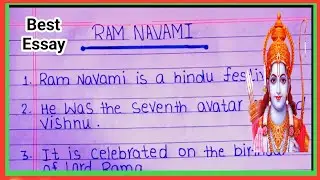 Best
Essay
RAM NAVAMI
1. Ram Navami is a hindu
2. He was the seventh avatar
Vishnu.
3. It is celebrated on the
of lord Rama